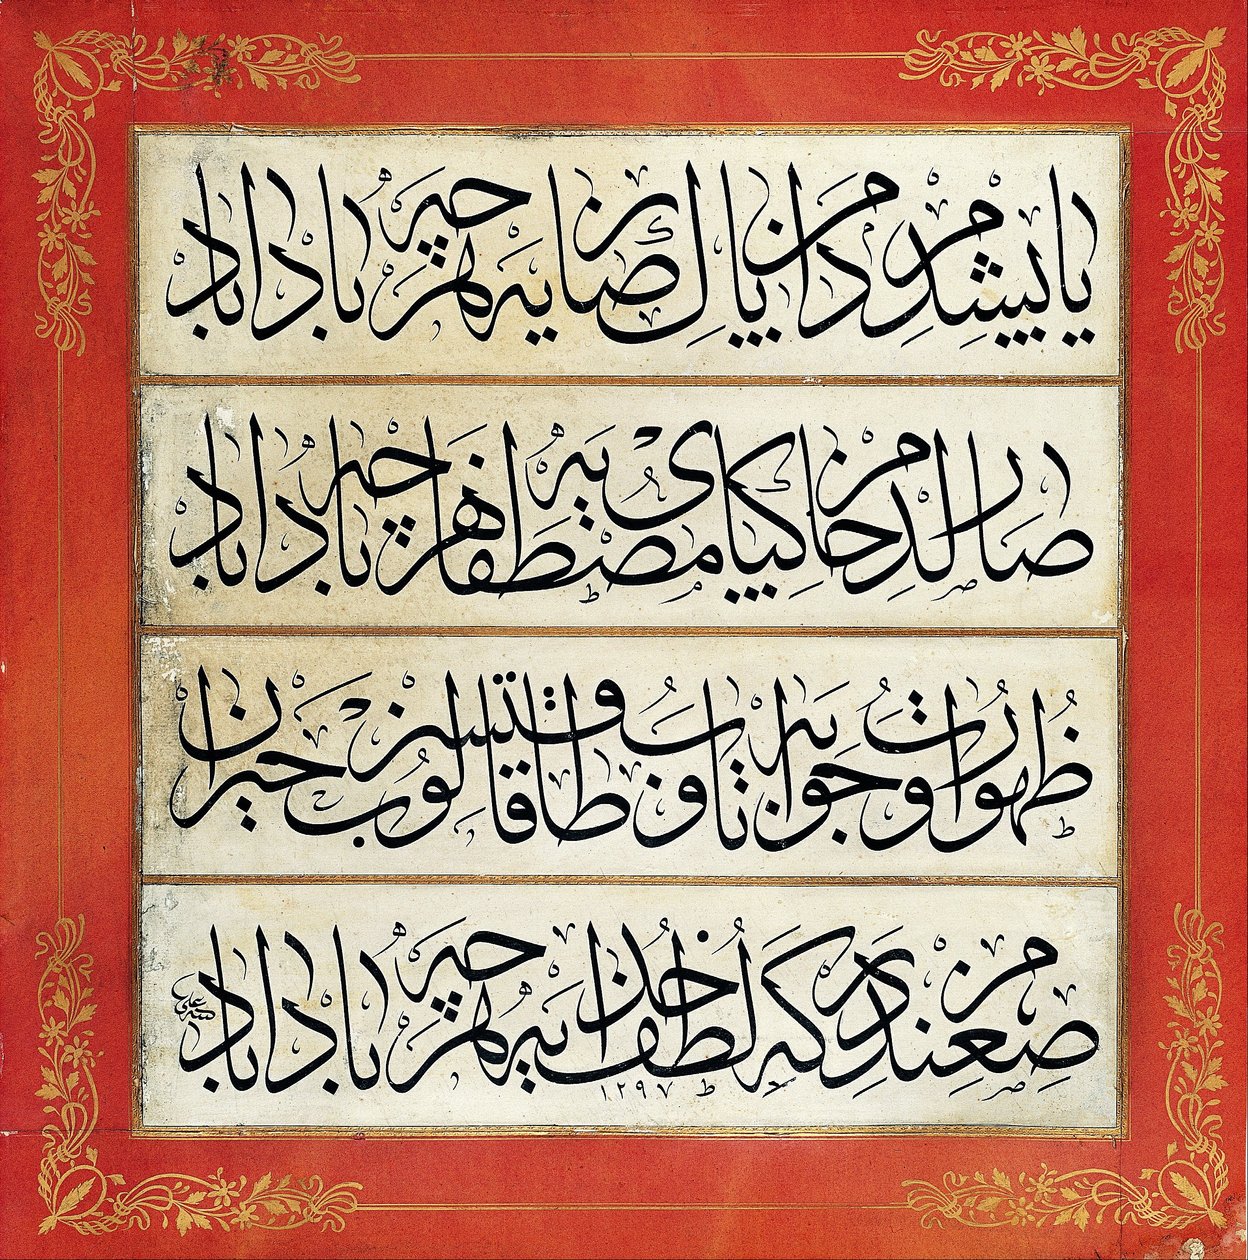 ياپيشدم دامن پاك رضايه هرچه باداباد
صارلدم خاكپاي مصطفايه هرچه باداباد
ظهورات و جوابه تاب و طاقتسز قلوب حيران
صغندم درگه لطف خدايه هرچه باداباد
١٢٩٧